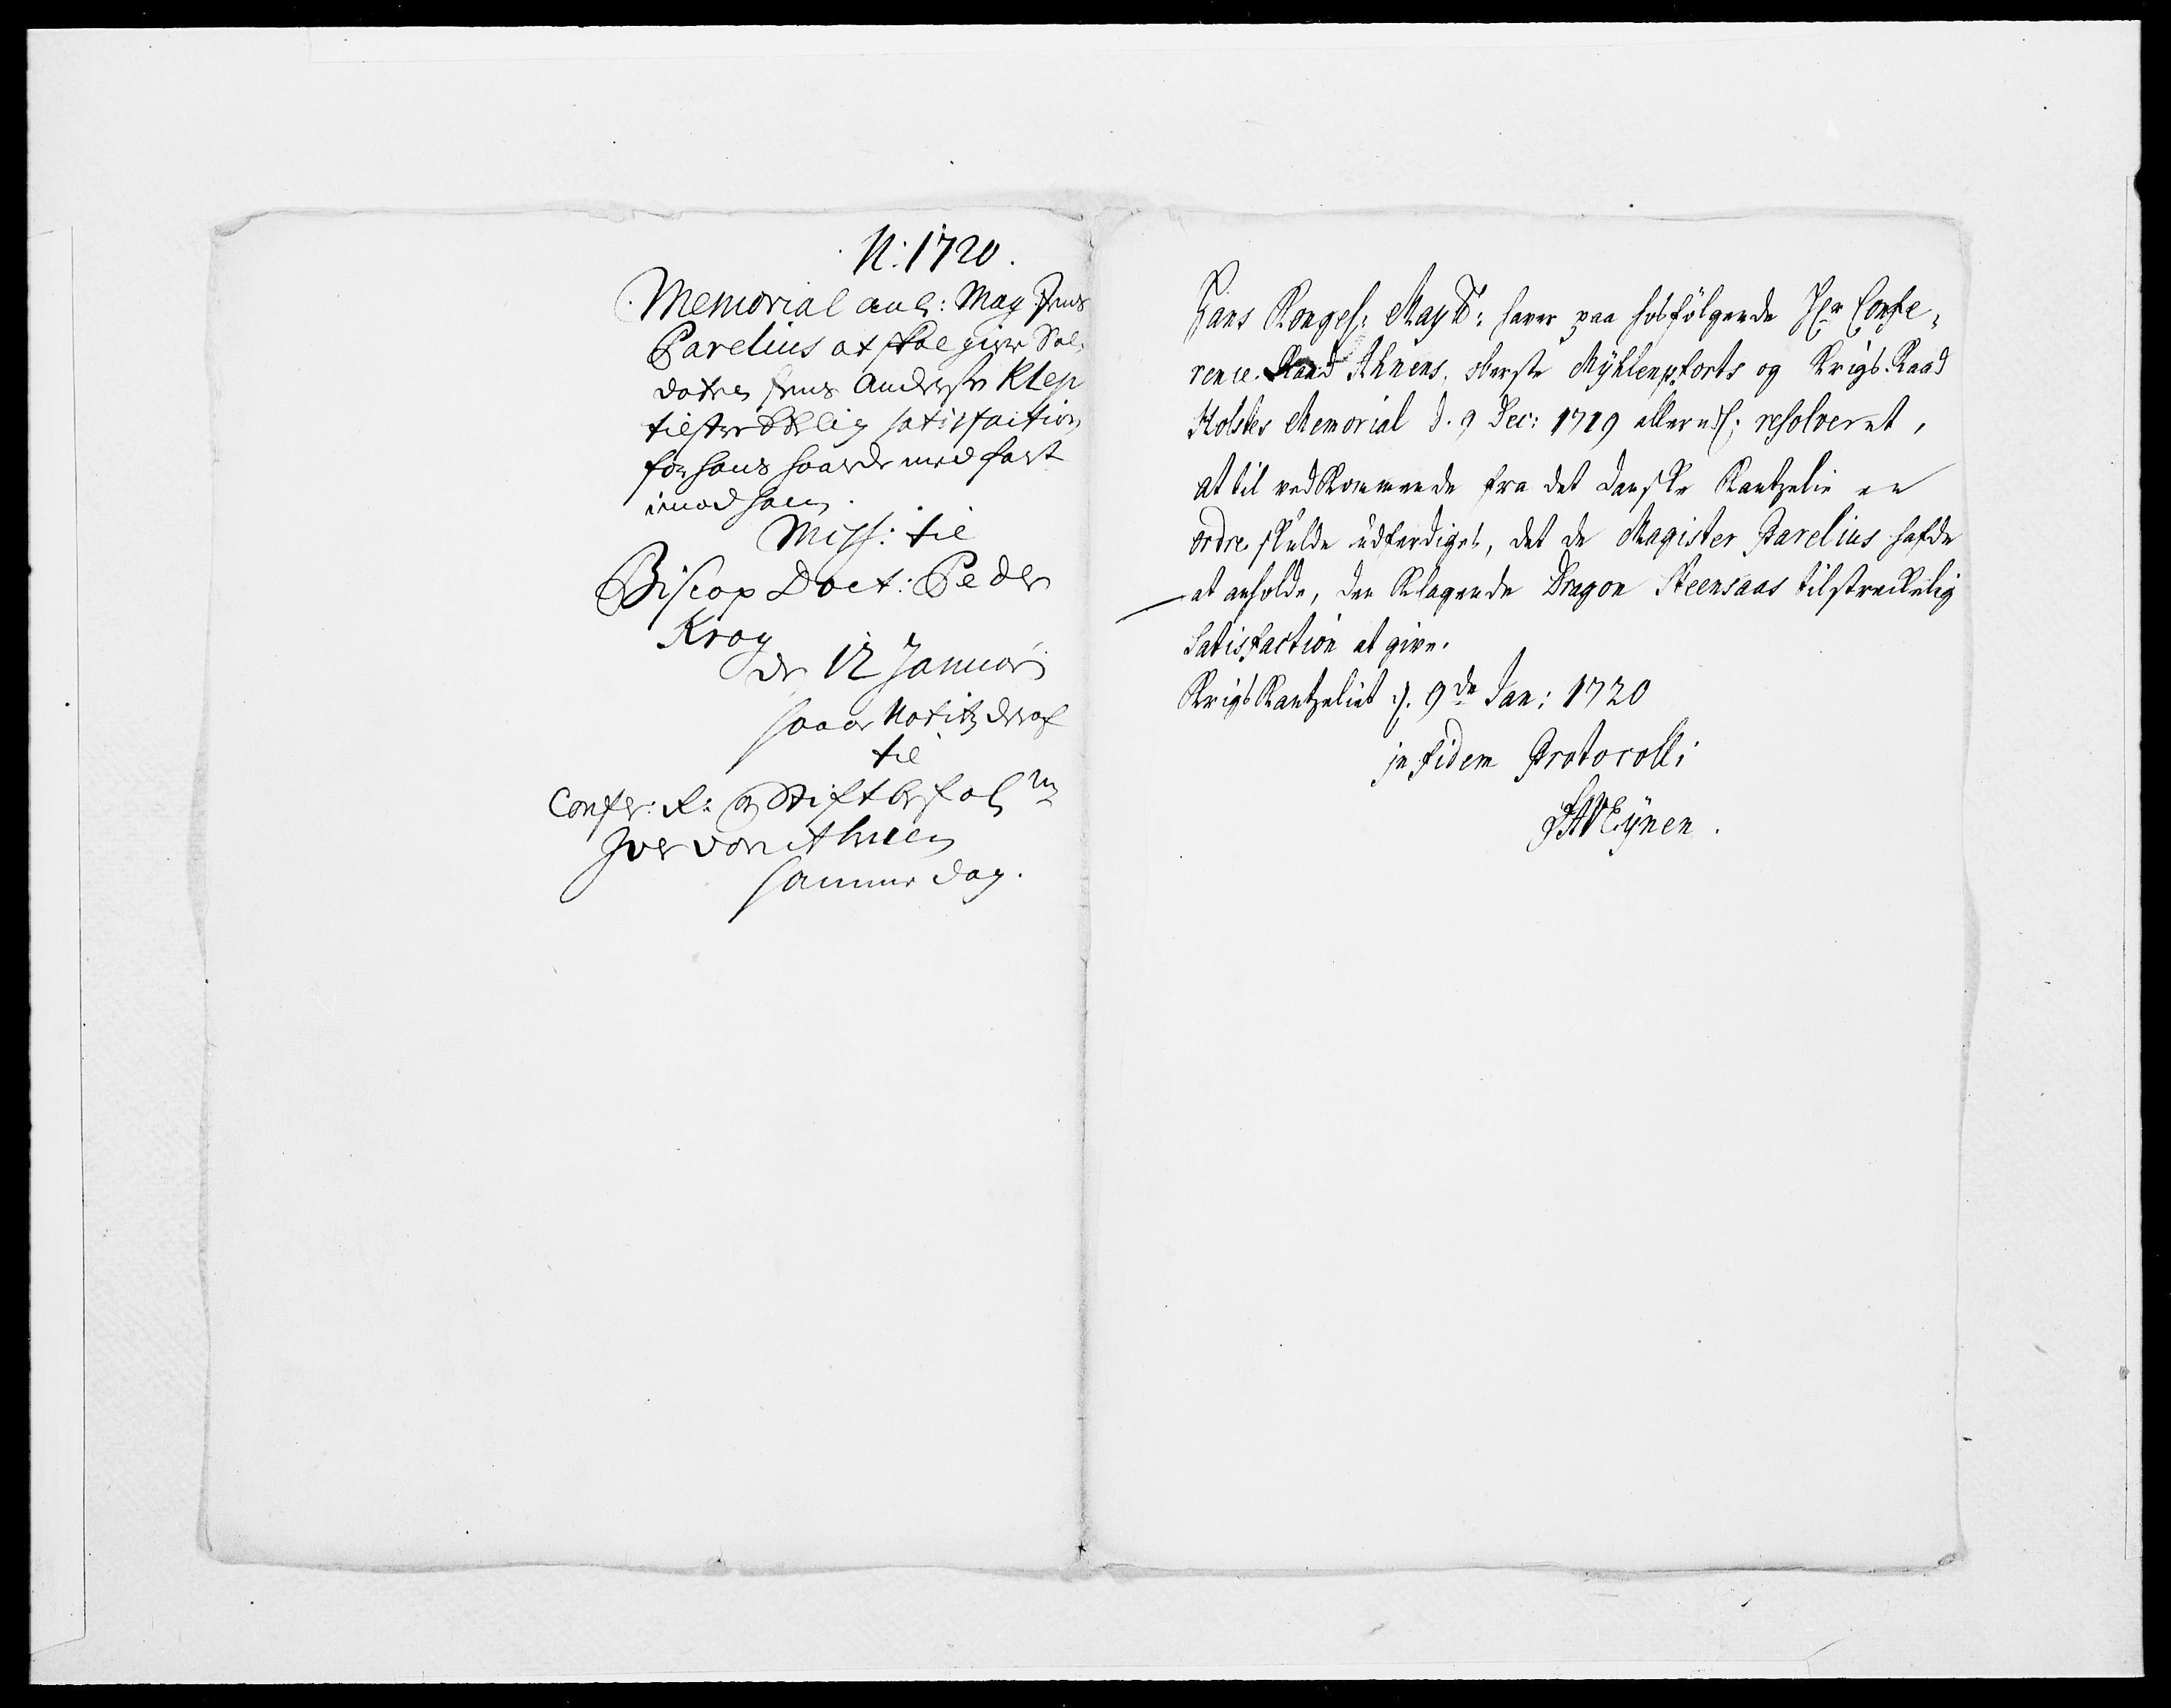 N: 1720.
Memorial anl: Mag Jens
Parelius at skal give Sol-
daten Jens Andersen Klep
tilstrekkelig satisfaction
for hans haarde medfart
imod ham.
Miss: til
Biscop Doct: Peder
Krog
de 12 Januarii
saaer Notitz deraf
til
Confer: R: og Stiftbefal m
Iver von Ahnen
samme dag.
Hans Kongel: Mayts: haver paa hosfölgende Hr Confe-
rence-Raad Ahnens, oberste Mÿhlenpforts og Krigs-Raad
Holstes Memorial d. 9 Dec: 1719 allernd: resolveret,
at til vedkommende fra det danske Kantzelie en
ordre skulde udferdiges, det de Magister Parelius hafde
at anholde, den klagende Dragon Steensaas tilstreckelig
Satisfaction at give.
Krigs Kantzeliet d. 9de Jan: 1720
in fidem Protocolli
Eÿnen.